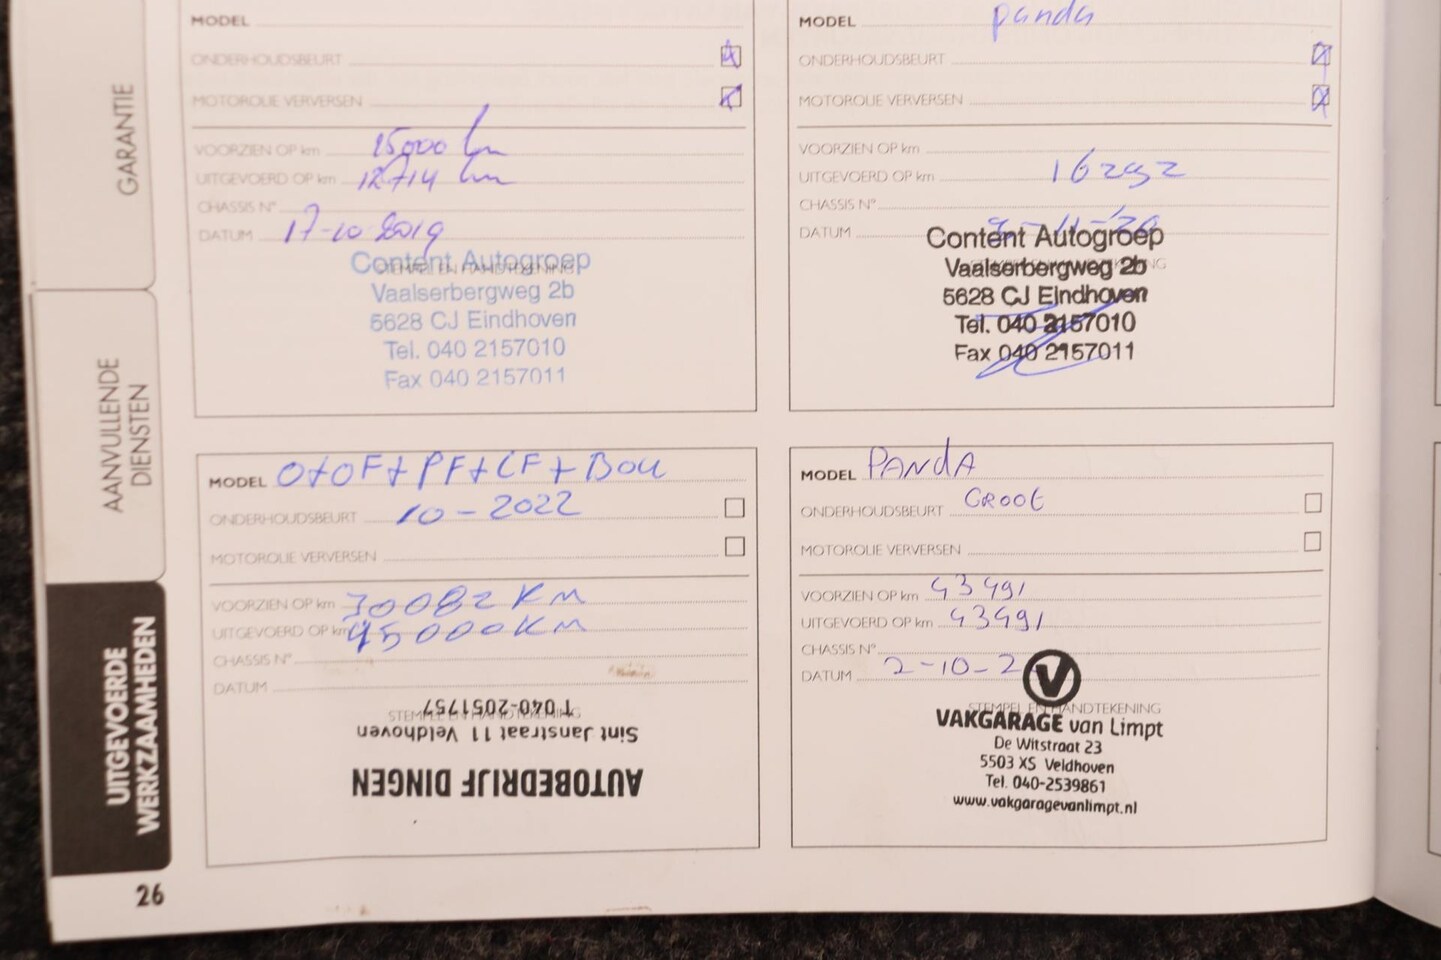 GARANTIE
AANVULLENDE
DIENSTEN
UITGEVOERDE
WERKZAAMHEDEN
26
MODEL
ONDERHOUDSBEURT
MOTOROLIE VERVERSEN
VOORZIEN OP km 15000 km
UITGEVOERD OP km 12714 km
CHASSIS N°
DATUM 17-10-2019
STEMPEL EN HANDTEKENING
Content Autogroep
Vaalserbergweg 2b
5628 CJ Eindhoven
Tel. 040 2157010
Fax 040 2157011
MODEL panda
ONDERHOUDSBEURT
MOTOROLIE VERVERSEN
VOORZIEN OP km
UITGEVOERD OP km 16292
CHASSIS N°
DATUM
Content Autogroep
Vaalserbergweg 2b
5628 CJ Eindhoven
Tel. 040 2157010
Fax 040 2157011
MODEL O+OF+PF+CF+BOU
ONDERHOUDSBEURT 10-2022
MOTOROLIE VERVERSEN
VOORZIEN OP km 30082 KM
UITGEVOERD OP km 45000KM
CHASSIS N°
DATUM
STEMPEL EN HANDTEKENING
AUTOBEDRIJF DINGEN
Sint Janstraat 11 Veldhoven
T 040-2051757
MODEL PANdA
ONDERHOUDSBEURT GROOT
MOTOROLIE VERVERSEN
VOORZIEN OP km 43491
UITGEVOERD OP km 43491
CHASSIS N°
DATUM 2-10-2
STEMPEL EN HANDTEKENING
VAKGARAGE van Limpt
De Witstraat 23
5503 XS Veldhoven
Tel. 040-2539861
www.vakgaragevanlimpt.nl